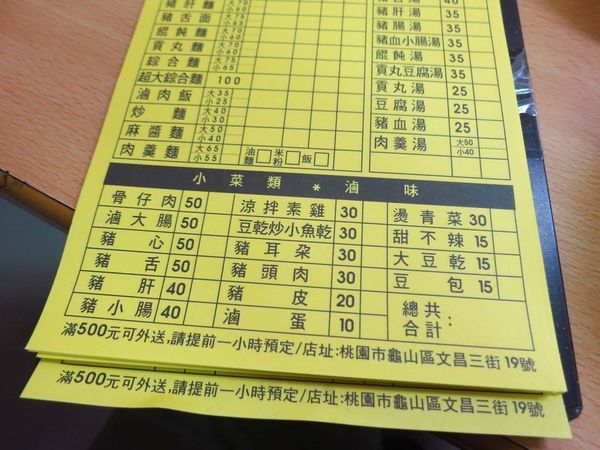 豬肝麵 大70 小60
豬舌面 大70 小60
餛飩麵
貢丸麵 大70 小60
綜合麵 大75 小65
超大綜合麵 100
滷肉飯 大35 小25
炒麵 大40 小30
麻醬麵 大50 小40
肉羹麵 大65 小55
油麵 米粉 飯
40
豬肝湯 35
豬腸湯 35
豬血小腸湯 35
餛飩湯 35
貢丸豆腐湯 35
貢丸湯 25
豆腐湯 25
豬血湯 25
肉羹湯 大50 小40
小菜類 * 滷味
骨仔肉 50 涼拌素雞 30 燙青菜 30
滷大腸 50 豆乾炒小魚乾 30 甜不辣 15
豬心 50 豬耳朵 30 大豆乾 15
豬舌 50 豬頭肉 30 豆包 15
豬肝 40 豬皮 20 總共
豬小腸 40 滷蛋 10 合計:
滿500元可外送,請提前一小時預定/店址:桃園市龜山區文昌三街19號
滿500元可外送,請提前一小時預定/店址:桃園市龜山區文昌三街19號